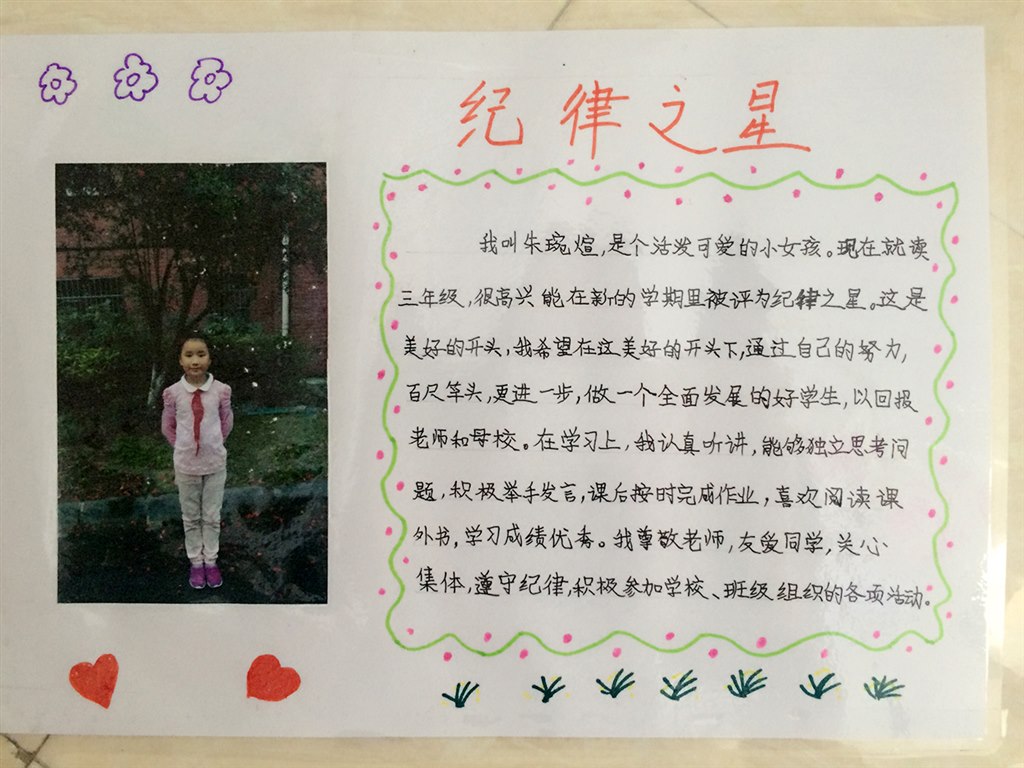 纪律之星
我叫朱琬煊,是个活发可爱的小女孩。现在就读
三年级,很高兴能在新的学期里被评为纪律之星。这是
美好的开头,我希望在这美好的开头下,通过自己的努力,
百尺竿头,更进一步,做一个全面发展的好学生,以回报
老师和母校。在学习上,我认真听讲,能够独立思考问
题,积极举手发言,课后按时完成作业,喜欢阅读课
外书,学习成绩优秀。我尊敬老师,友爱同学,关心
集体,遵守纪律,积极参加学校、班级组织的各项活动。